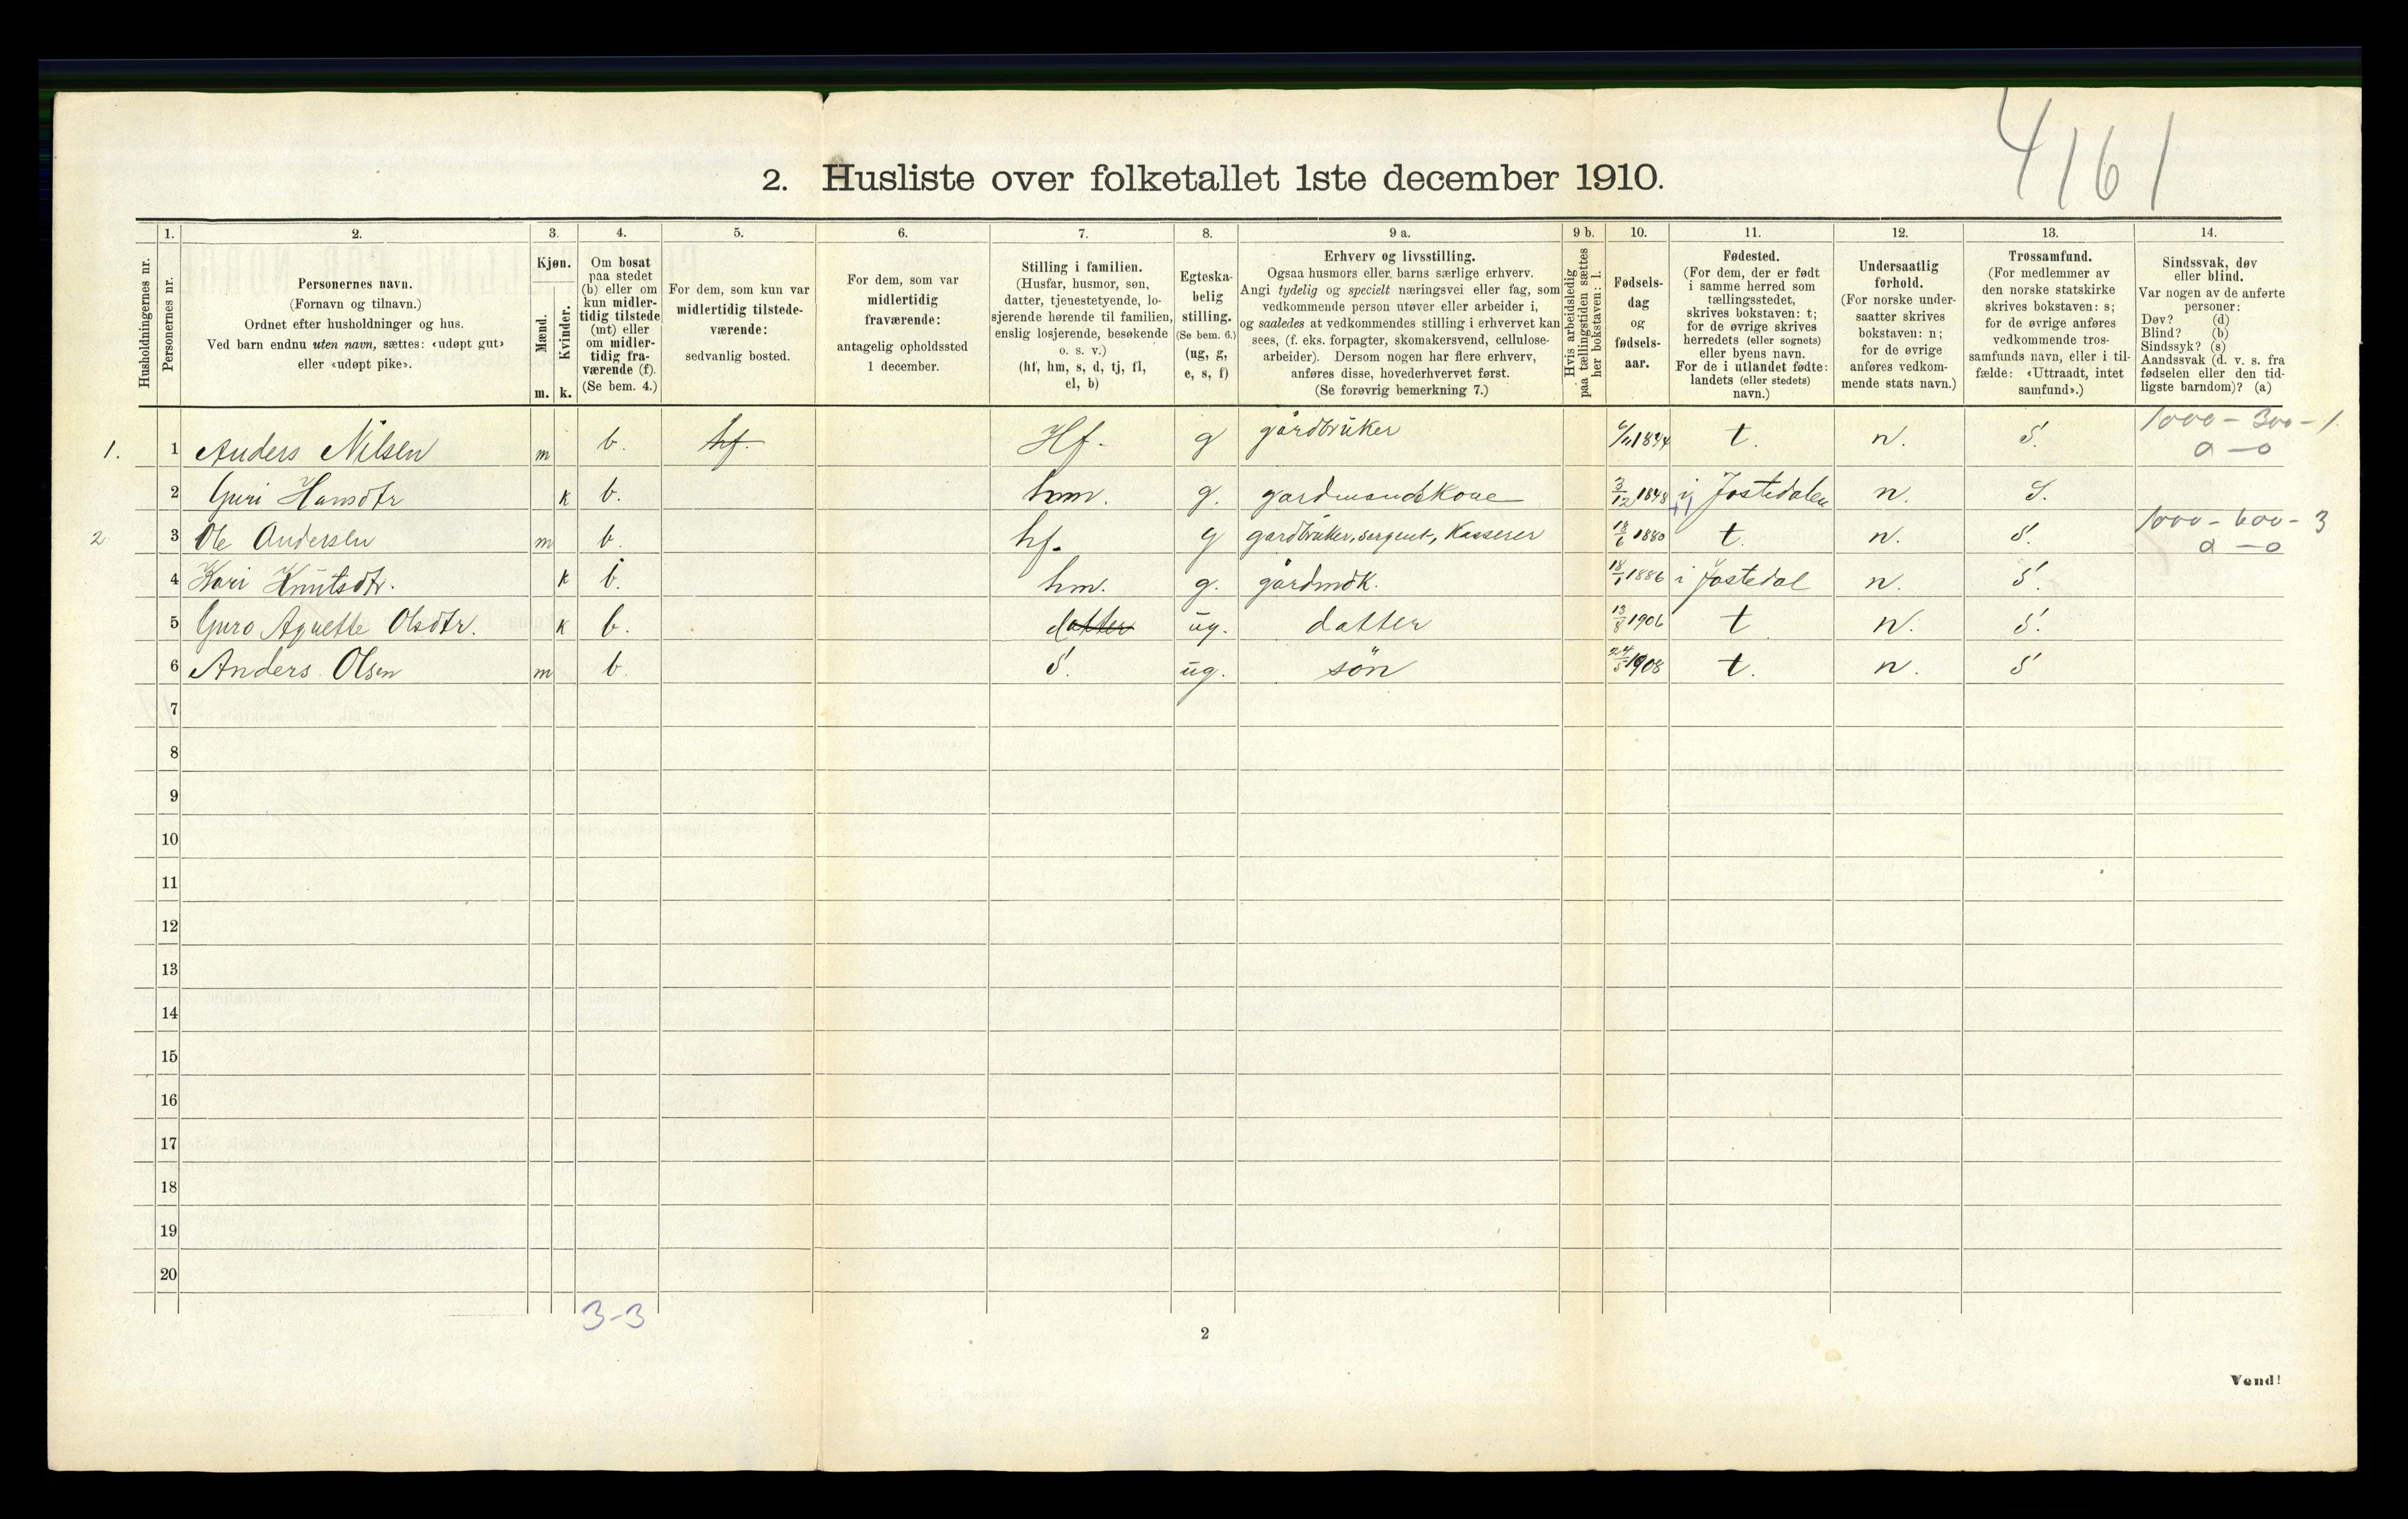 4161
2. Husliste over folketallet 1ste december 1910.
Husholdningernes nr.
1.
Personernes nr.
2.
Personernes navn.
(Fornavn og tilnavn.)
Ordnet efter husholdninger og hus.
Ved barn endnu uten navn, sættes: «udøpt gut»
eller «udøpt pike».
3.
Kjøn.
Mænd.
Kvinder.
m. k.
4.
Om bosat
paa stedet
(b) eller om
kun midler-
tidig tilstede
(mt) eller
om midler-
tidig fra-
værende (f).
(Se bem. 4.)
5.
For dem, som kun var
midlertidig tilstede-
værende:
sedvanlig bosted.
6.
For dem, som var
midlertidig
fraværende:
antagelig opholdssted
1 december.
7.
Stilling i familien.
(Husfar, husmor, søn,
datter, tjenestetyende, lo-
sjerende hørende til familien,
enslig losjerende, besøkende
o. s. v.)
(hf, hm, s, d, tj, fl,
el, b)
8.
Egteska-
belig
stilling.
(Se bem. 6.)
(ug, g,
e, s, f)
9 a.
Erhverv og livsstilling.
Ogsaa husmors eller barns særlige erhverv.
Angi tydelig og specielt næringsvei eller fag, som
vedkommende person utøver eller arbeider i,
og saaledes at vedkommendes stilling i erhvervet kan
sees, (f. eks. forpagter, skomakersvend, cellulose-
arbeider). Dersom nogen har flere erhverv,
anføres disse, hovederhvervet først.
(Se forøvrig bemerkning 7.)
9 b.
Hvis arbeidsledig
paa tællingstiden sættes
her bokstaven: l.
10.
Fødsels-
dag
og
fødsels-
aar.
11.
Fødested.
(For dem, der er født
i samme herred som
tællingsstedet,
skrives bokstaven: t;
for de øvrige skrives
herredets (eller sognets)
eller byens navn.
For de i utlandet fødte:
landets (eller stedets)
navn.)
12.
Undersaatlig
forhold.
(For norske under-
saatter skrives
bokstaven: n;
for de øvrige
anføres vedkom-
mende stats navn.)
13.
Trossamfund.
(For medlemmer av
den norske statskirke
skrives bokstaven: s;
for de øvrige anføres
vedkommende tros-
samfunds navn, eller i til-
fælde: «Uttraadt, intet
samfund».)
14.
Sindssvak, døv
eller blind.
Var nogen av de anførte
personer:
Døv? (d)
Blind? (b)
Sindssyk? (s)
Aandssvak (d. v. s. fra
fødselen eller den tid-
ligste barndom)? (a)
1. 1 Anders Nilsen m b. hf. Hf. g gårdbrüker 1844 t. n. S. 1000 - 300 - 1.
a - o
2 Guri Hansdtr k b. hm. g. gardmandskone 3/12 1848 i Jostedalen n. S.
2 3 Ole Andersen m b. hf. g gardbrüker, sergent, Kasserer 18/6 1880 t. n. S. 1000 - 600 - 3
a - o
4 Kari Knütsdtr. k b. hm. g. gårdmdk. 18/1 1886 i Jostedal n. S.
5 Guro Agnette Olsdtr. k b. datter üg. datter 13/8 1906 t n. S.
6 Anders Olsen m b. S. üg. sön 24/5 1908 t. n. S
7
8
9
10
11
12
13
14
15
16
17
18
19
20
3-3
2
Vend!